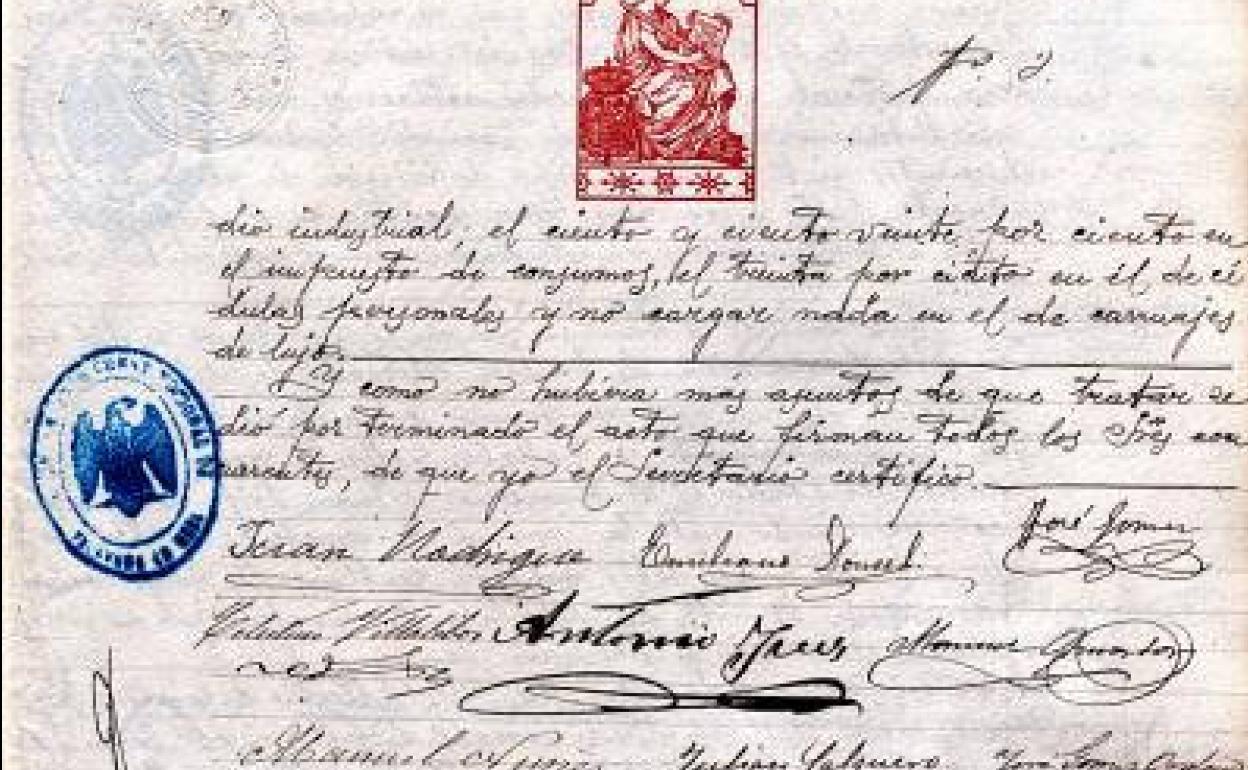 P. 2.
dio industrial, el ciento y ciento veinte por ciento en
el impuesto de consumos, el treinta por ciento en el de cé
dulas personales y no cargar nada en el de carruajes
de lujo.
Y como no hubiera más asuntos de que tratar se
dió por terminado el acto que firman todos los Sres con
currentes, de que yo el Secretario certifico.
Juan Rodrigue Emiliano Doncel José Gomez
Villalobos Antonio Manuel
Manuel Julian